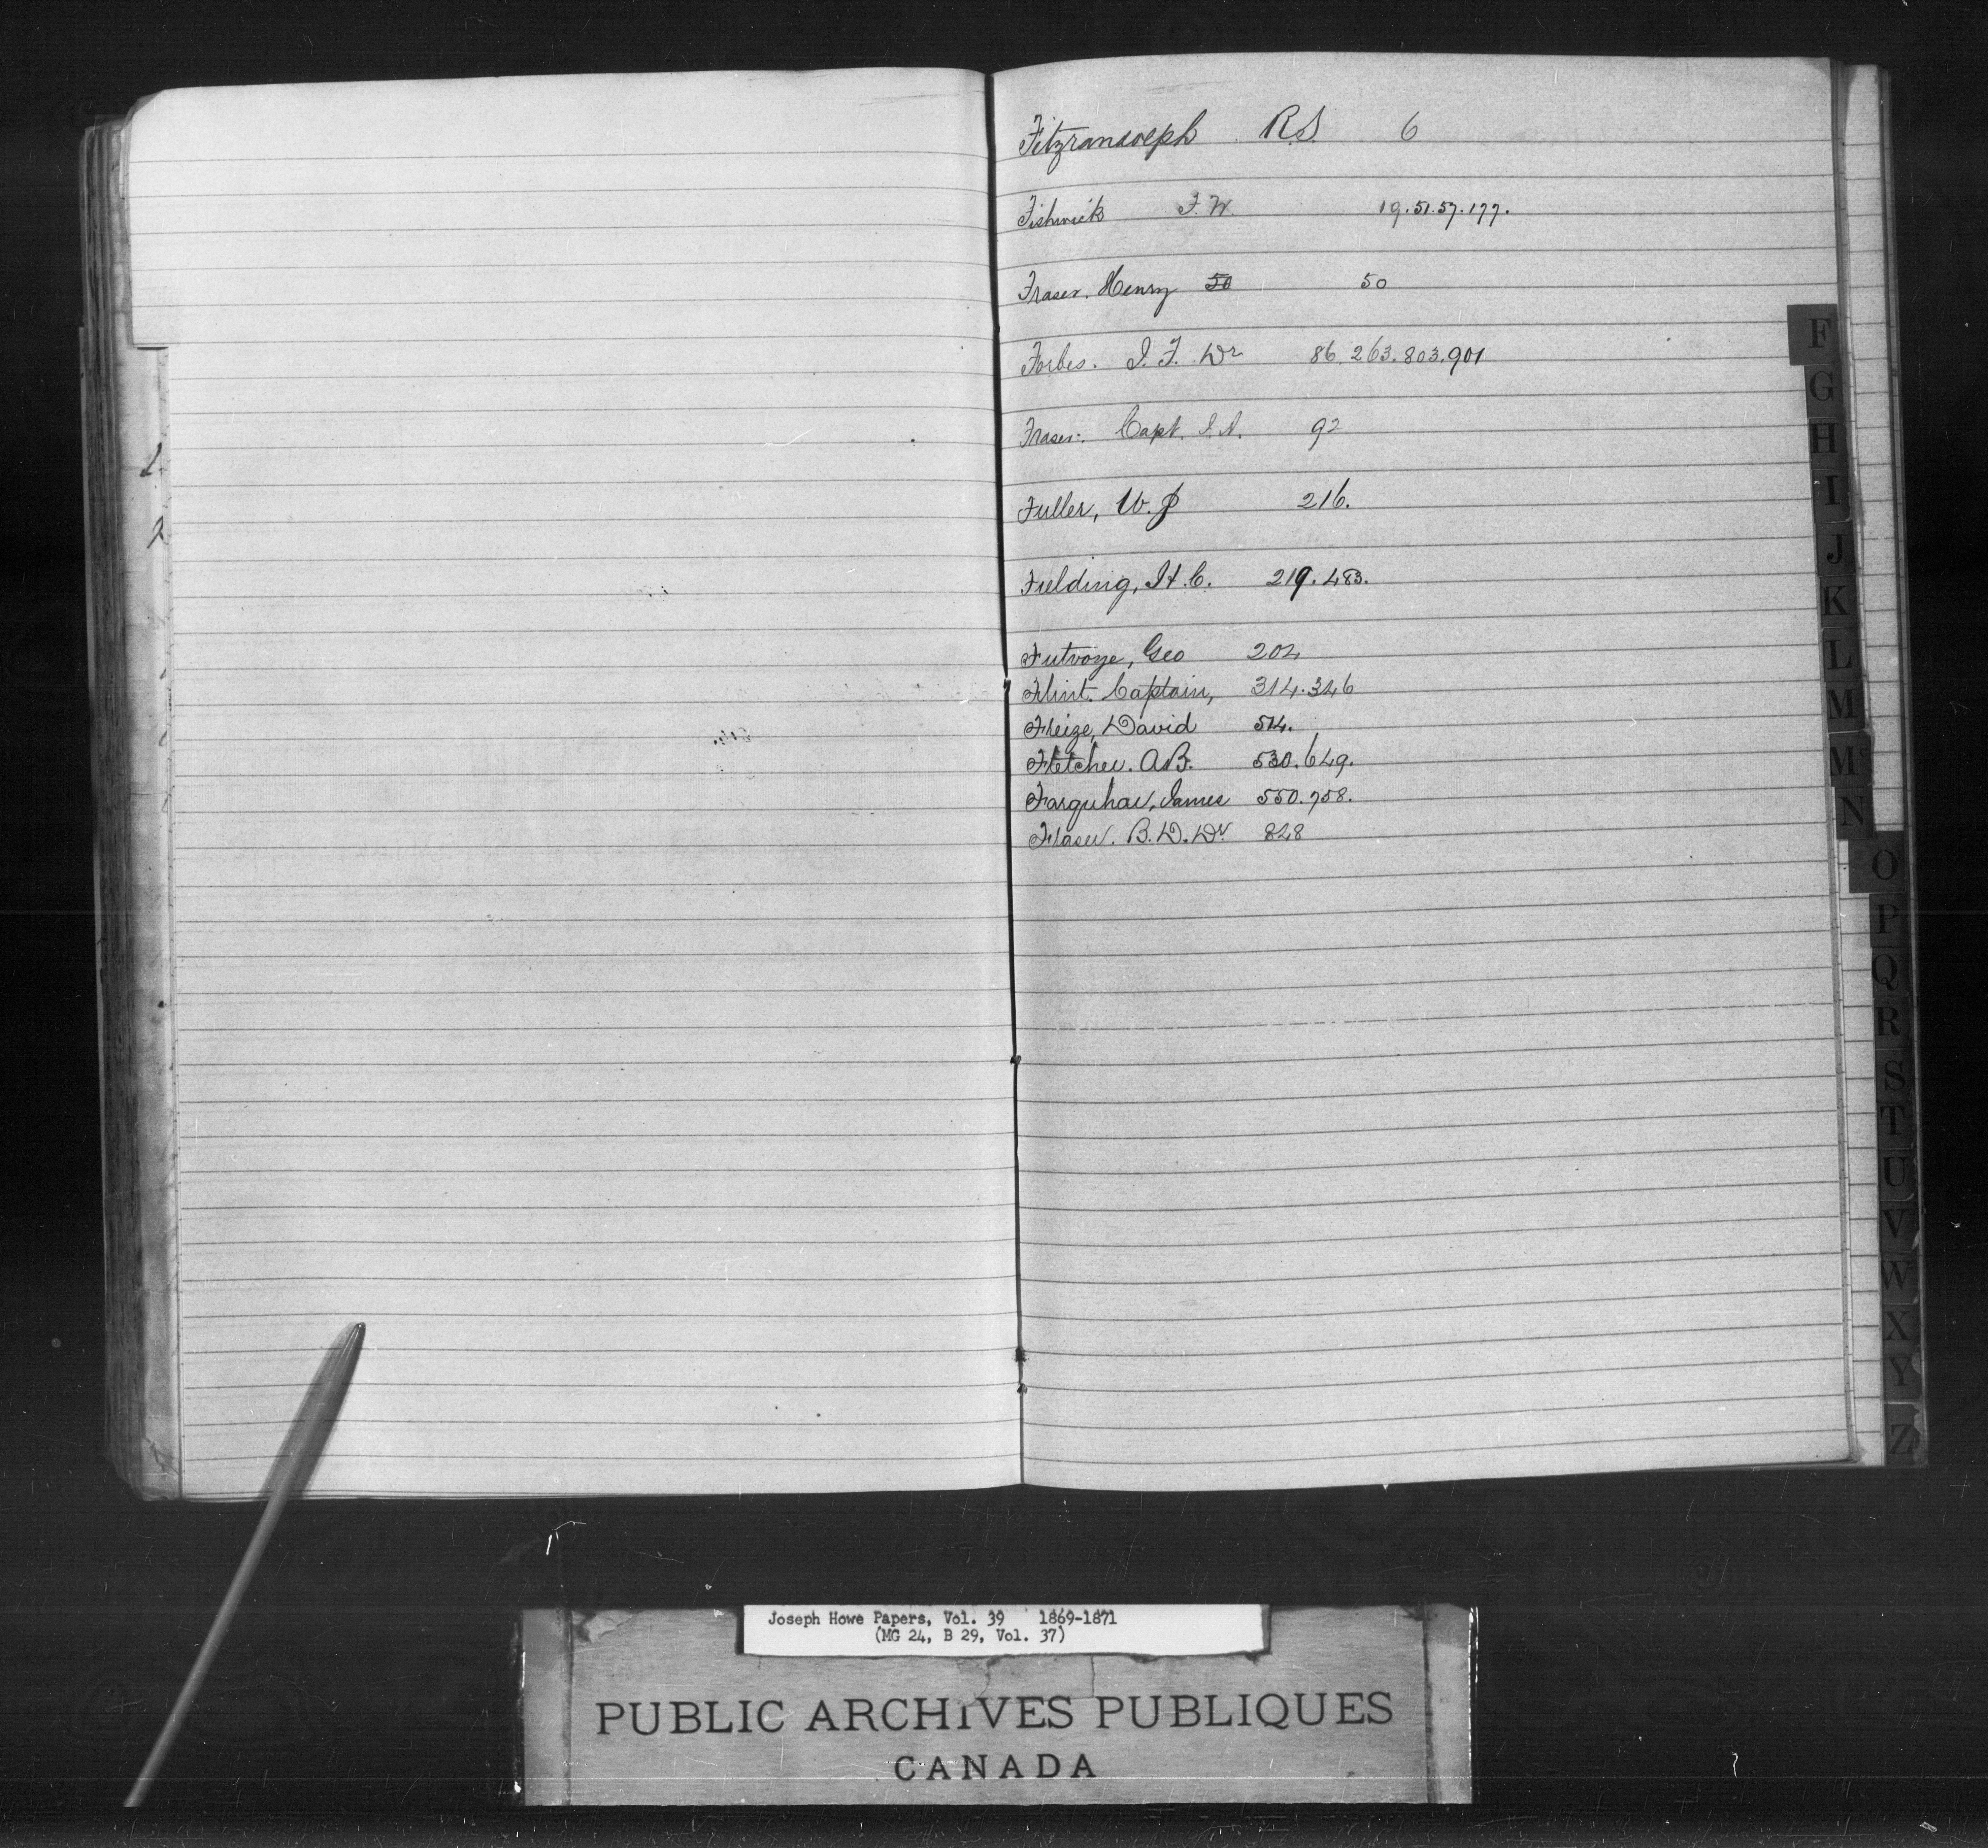 Fitzrandolph R.S. 6
Fishwick F.W. 19.51.57.177.
Fraser. Henry 50 50
Forbes. J.F. Dr 86.263.803.901
Fraser. Capt. J.A. 92
Fuller, W. P 216.
Fielding, H.C. 219.483.
Futvoye, Geo 204
Flint. Captain, 314.346
Freize, David 514.
Fletcher. A.B. 530.649.
Farquhar, James 550.758.
Fraser. B.D. Dr 828
F
G
H
I
J
K
L
M
Mc
N
O
P
Q
R
S
T
U
V
W
X
Y
Z
Joseph Howe Papers, Vol. 39 1869-1871
(MG 24, B 29, Vol. 37)
PUBLIC ARCHIVES PUBLIQUES
CANADA